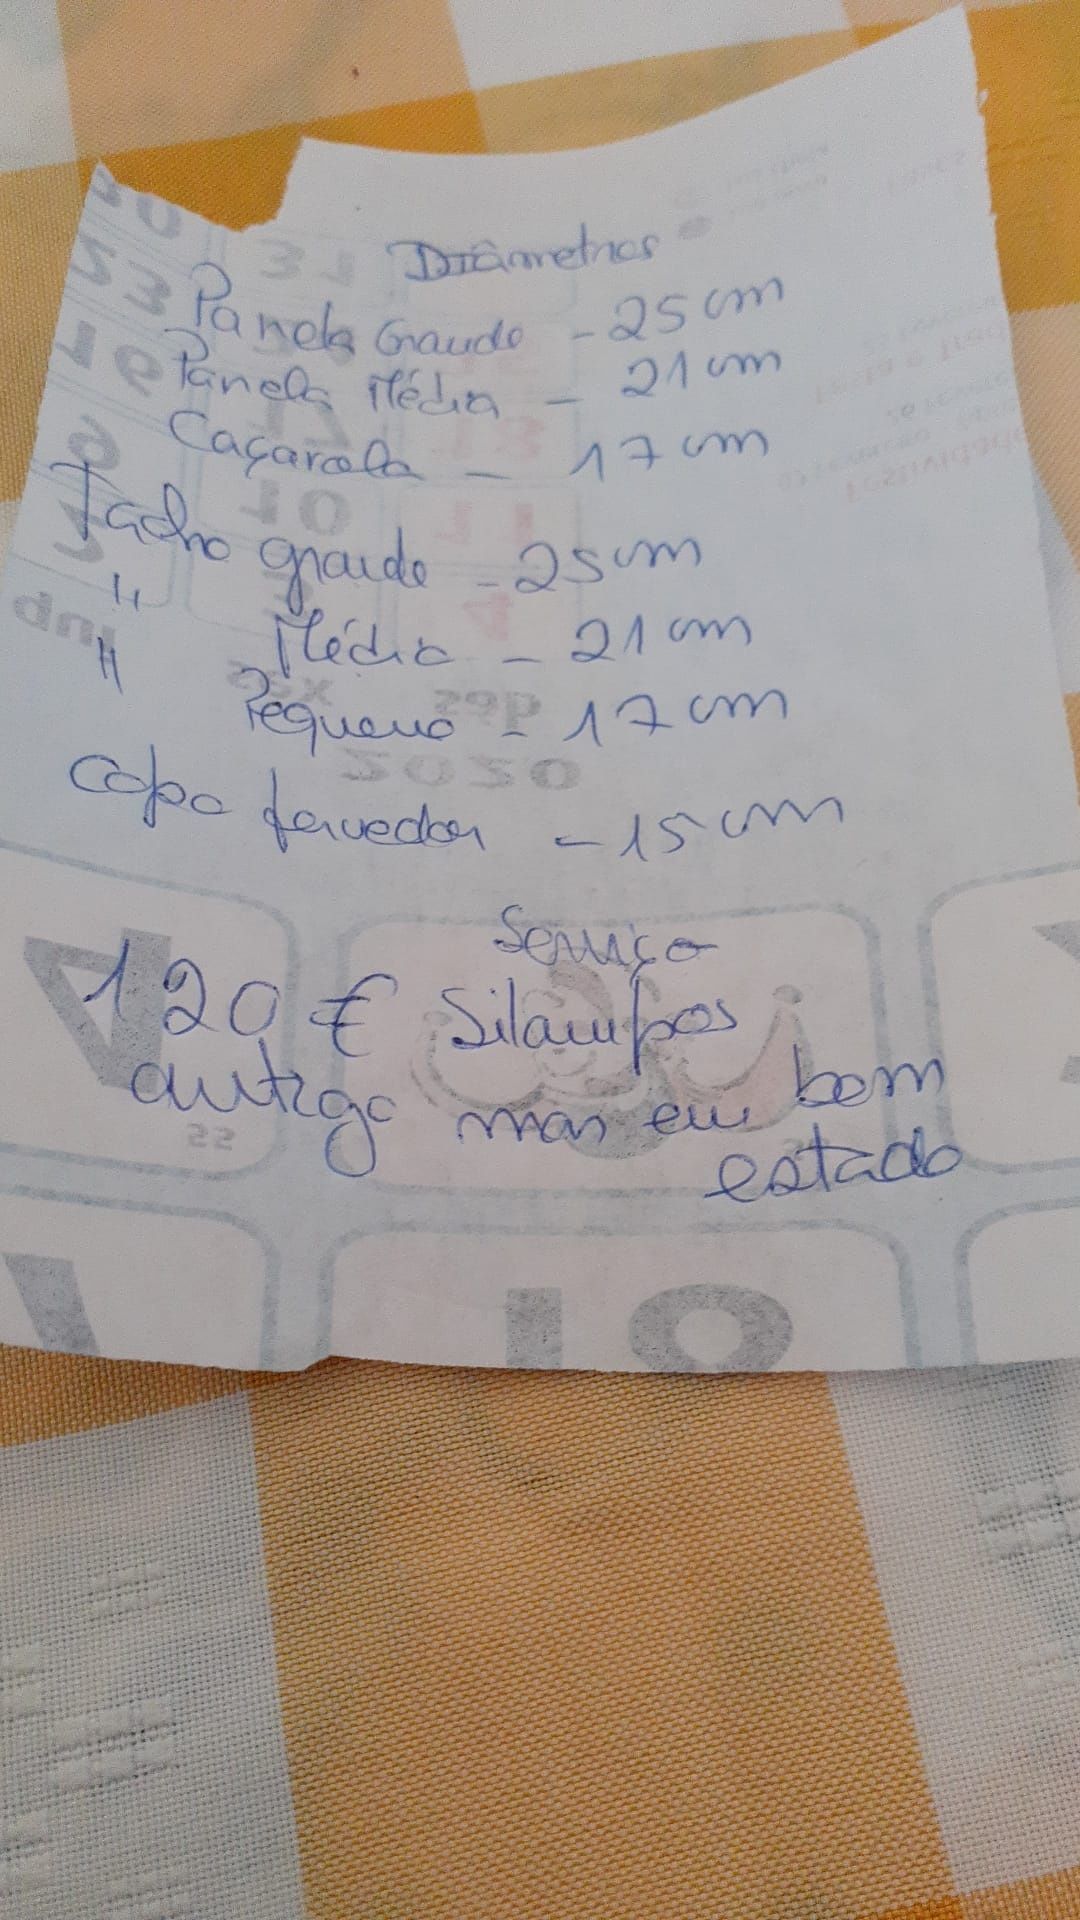 Diâmetros
Panela Grande - 25 cm
Panela Média - 21 cm
Caçarola - 17 cm
Tacho grande - 25 cm
" Médio - 21 cm
" Pequeno - 17 cm
Copo fervedor - 15 cm
Serviço
120 € Silampos
antigo mas em bom
estado